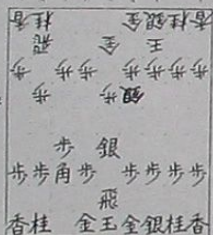 香桂金銀桂香
飛金王
歩歩歩歩歩歩歩
歩歩銀
歩銀
歩歩角歩歩歩歩歩
飛
香桂金王金銀桂香